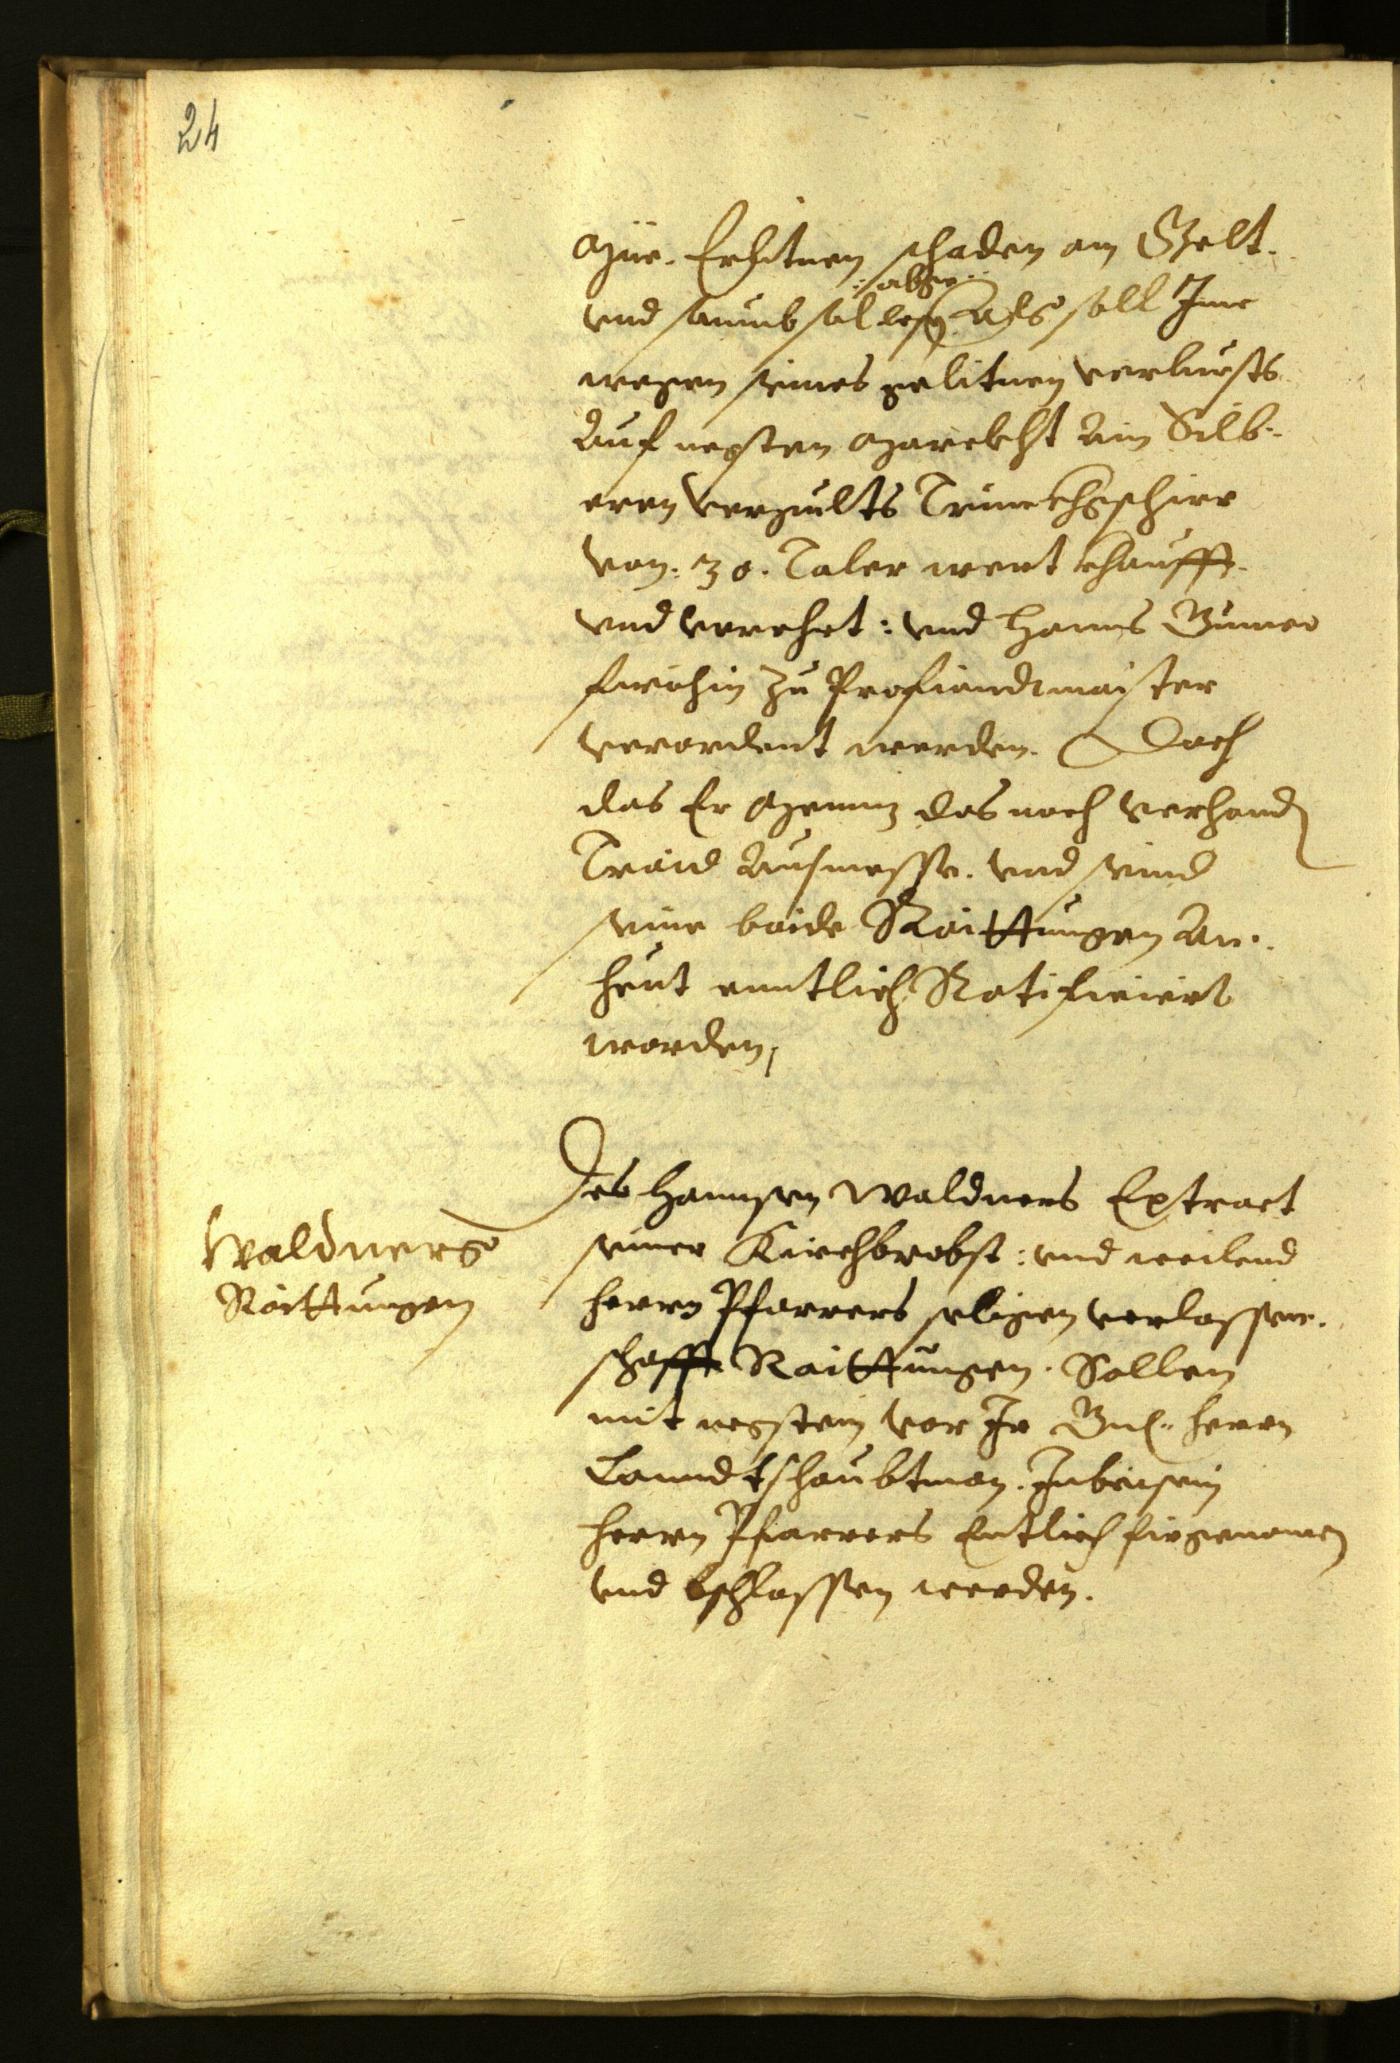 24
Müe. Erlitnen schaden am Gelt.
abger
und saumbsal lesg Als soll Ime
wegen seines gelitnen verlursts
Auf negsten Marckht Ain Silb-
eren vergults Trinckhgschirr
von. 30. Taler wert khaufft.
und verehrt: und Hanns Gumer
firohin zu Profiandtmaister
verordent werden. Doch
das Er Memmen das noch verhanden
Traid Ausmesse. und seind
seine baide Raittungen An-
heut enntlich Ratificiert
worden,
Waldners
Raittungen
Des Hannsen Waldners Extract
seiner Kirchbrobst: und weilend
herrn Pfarrers seligen verlassen-
schafft Raittungen. Sollen
mit negstem vor Ir Gn: herrn
Lanndtshaubtman. Inbeysein
herrn Pfarrers Entlich firgenomen
und bschlossen werden.